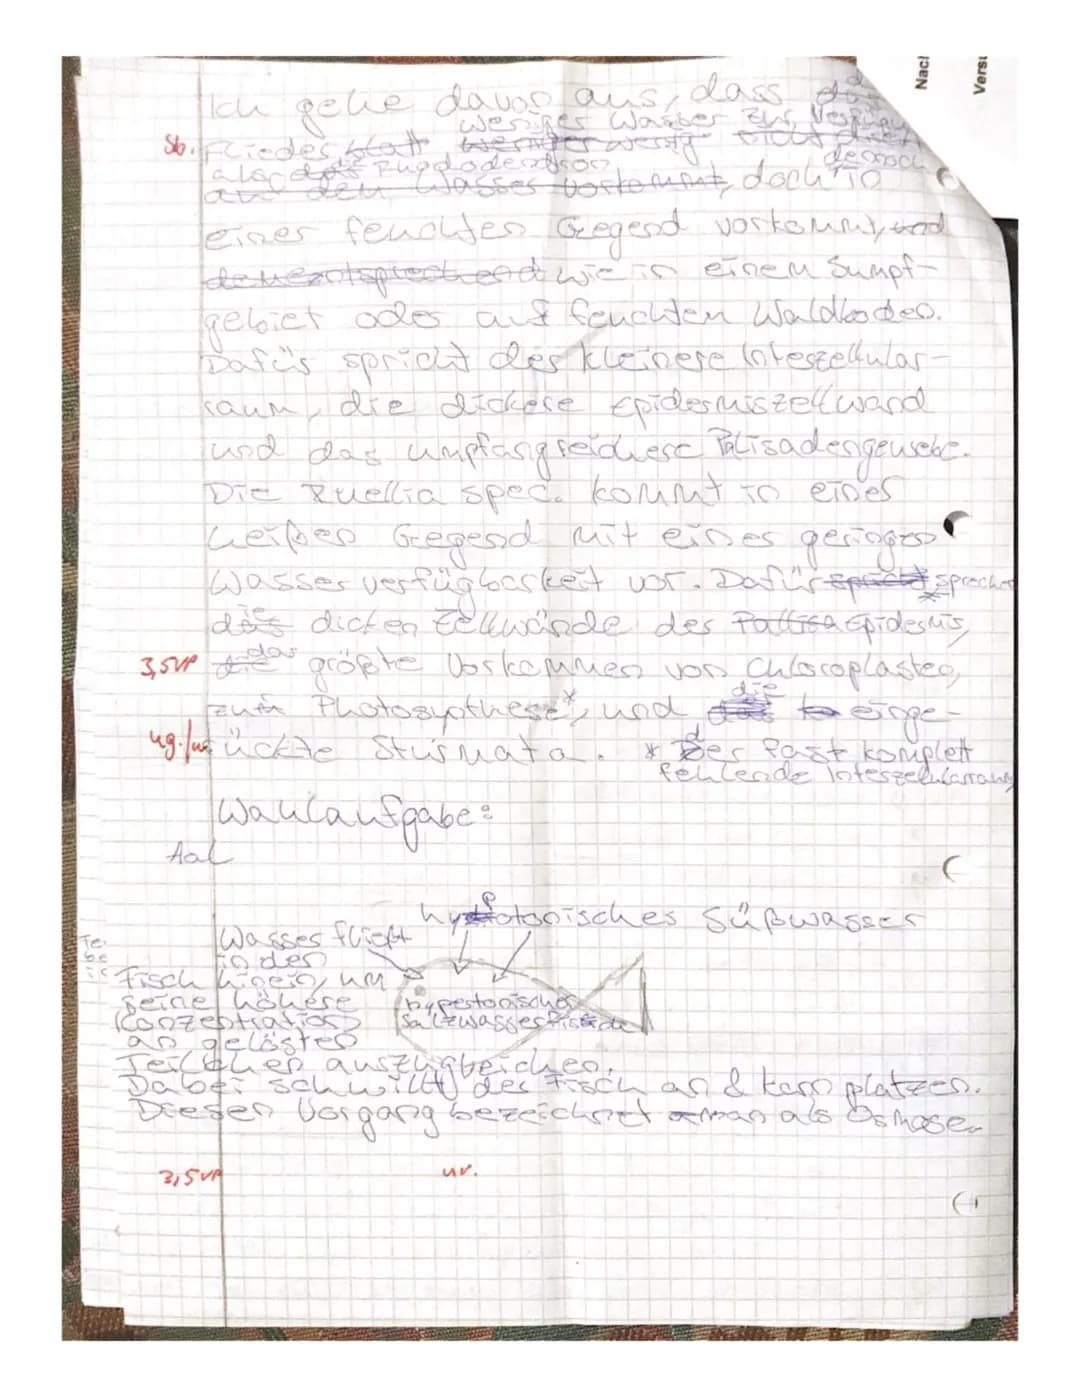 Nacl
Versu
Ich gehe davon aus, dass
weniger Wasser zur
Sb. Flieder
als Rhododendron dennoch
an den Wasser vorkommt, doch in
einer feuchten Gegend vorkommt, und
dementsprechend wie in einem Sumpf-
gebiet oder auf feuchten Waldboden.
Dafür spricht der kleinere Interzellular-
raum, die dickere Epidermiszellwand
und das umpfangreichere Palisadengewebe.
Die Ruellia spec. kommt in einer
heißen Gegend mit einer geringen
Wasserverfügbarkeit vor. Dafür spricht sprechen
die dicken Zellwände der Pallisa Epidermis,
3,5VP die das größte Vorkommen von Chloroplasten,
zum Photosynthese*, und die einge-
ug./ rückte Sturmata. * der fast komplett
fehlende Interzellularraum
Wahlaufgabe:
Aal
hypotonisches Süßwasser
Wasser fließt
in den
Fisch hinein, um
seine höhere
Konzentration
an gelösten
hypertonischer
Salzwasserfisch
Teilchen auszugleichen.
Dabei schwillt der Fisch an & kann platzen.
Diesen Vorgang bezeichnet man als Osmose.
3,5VP
uv.